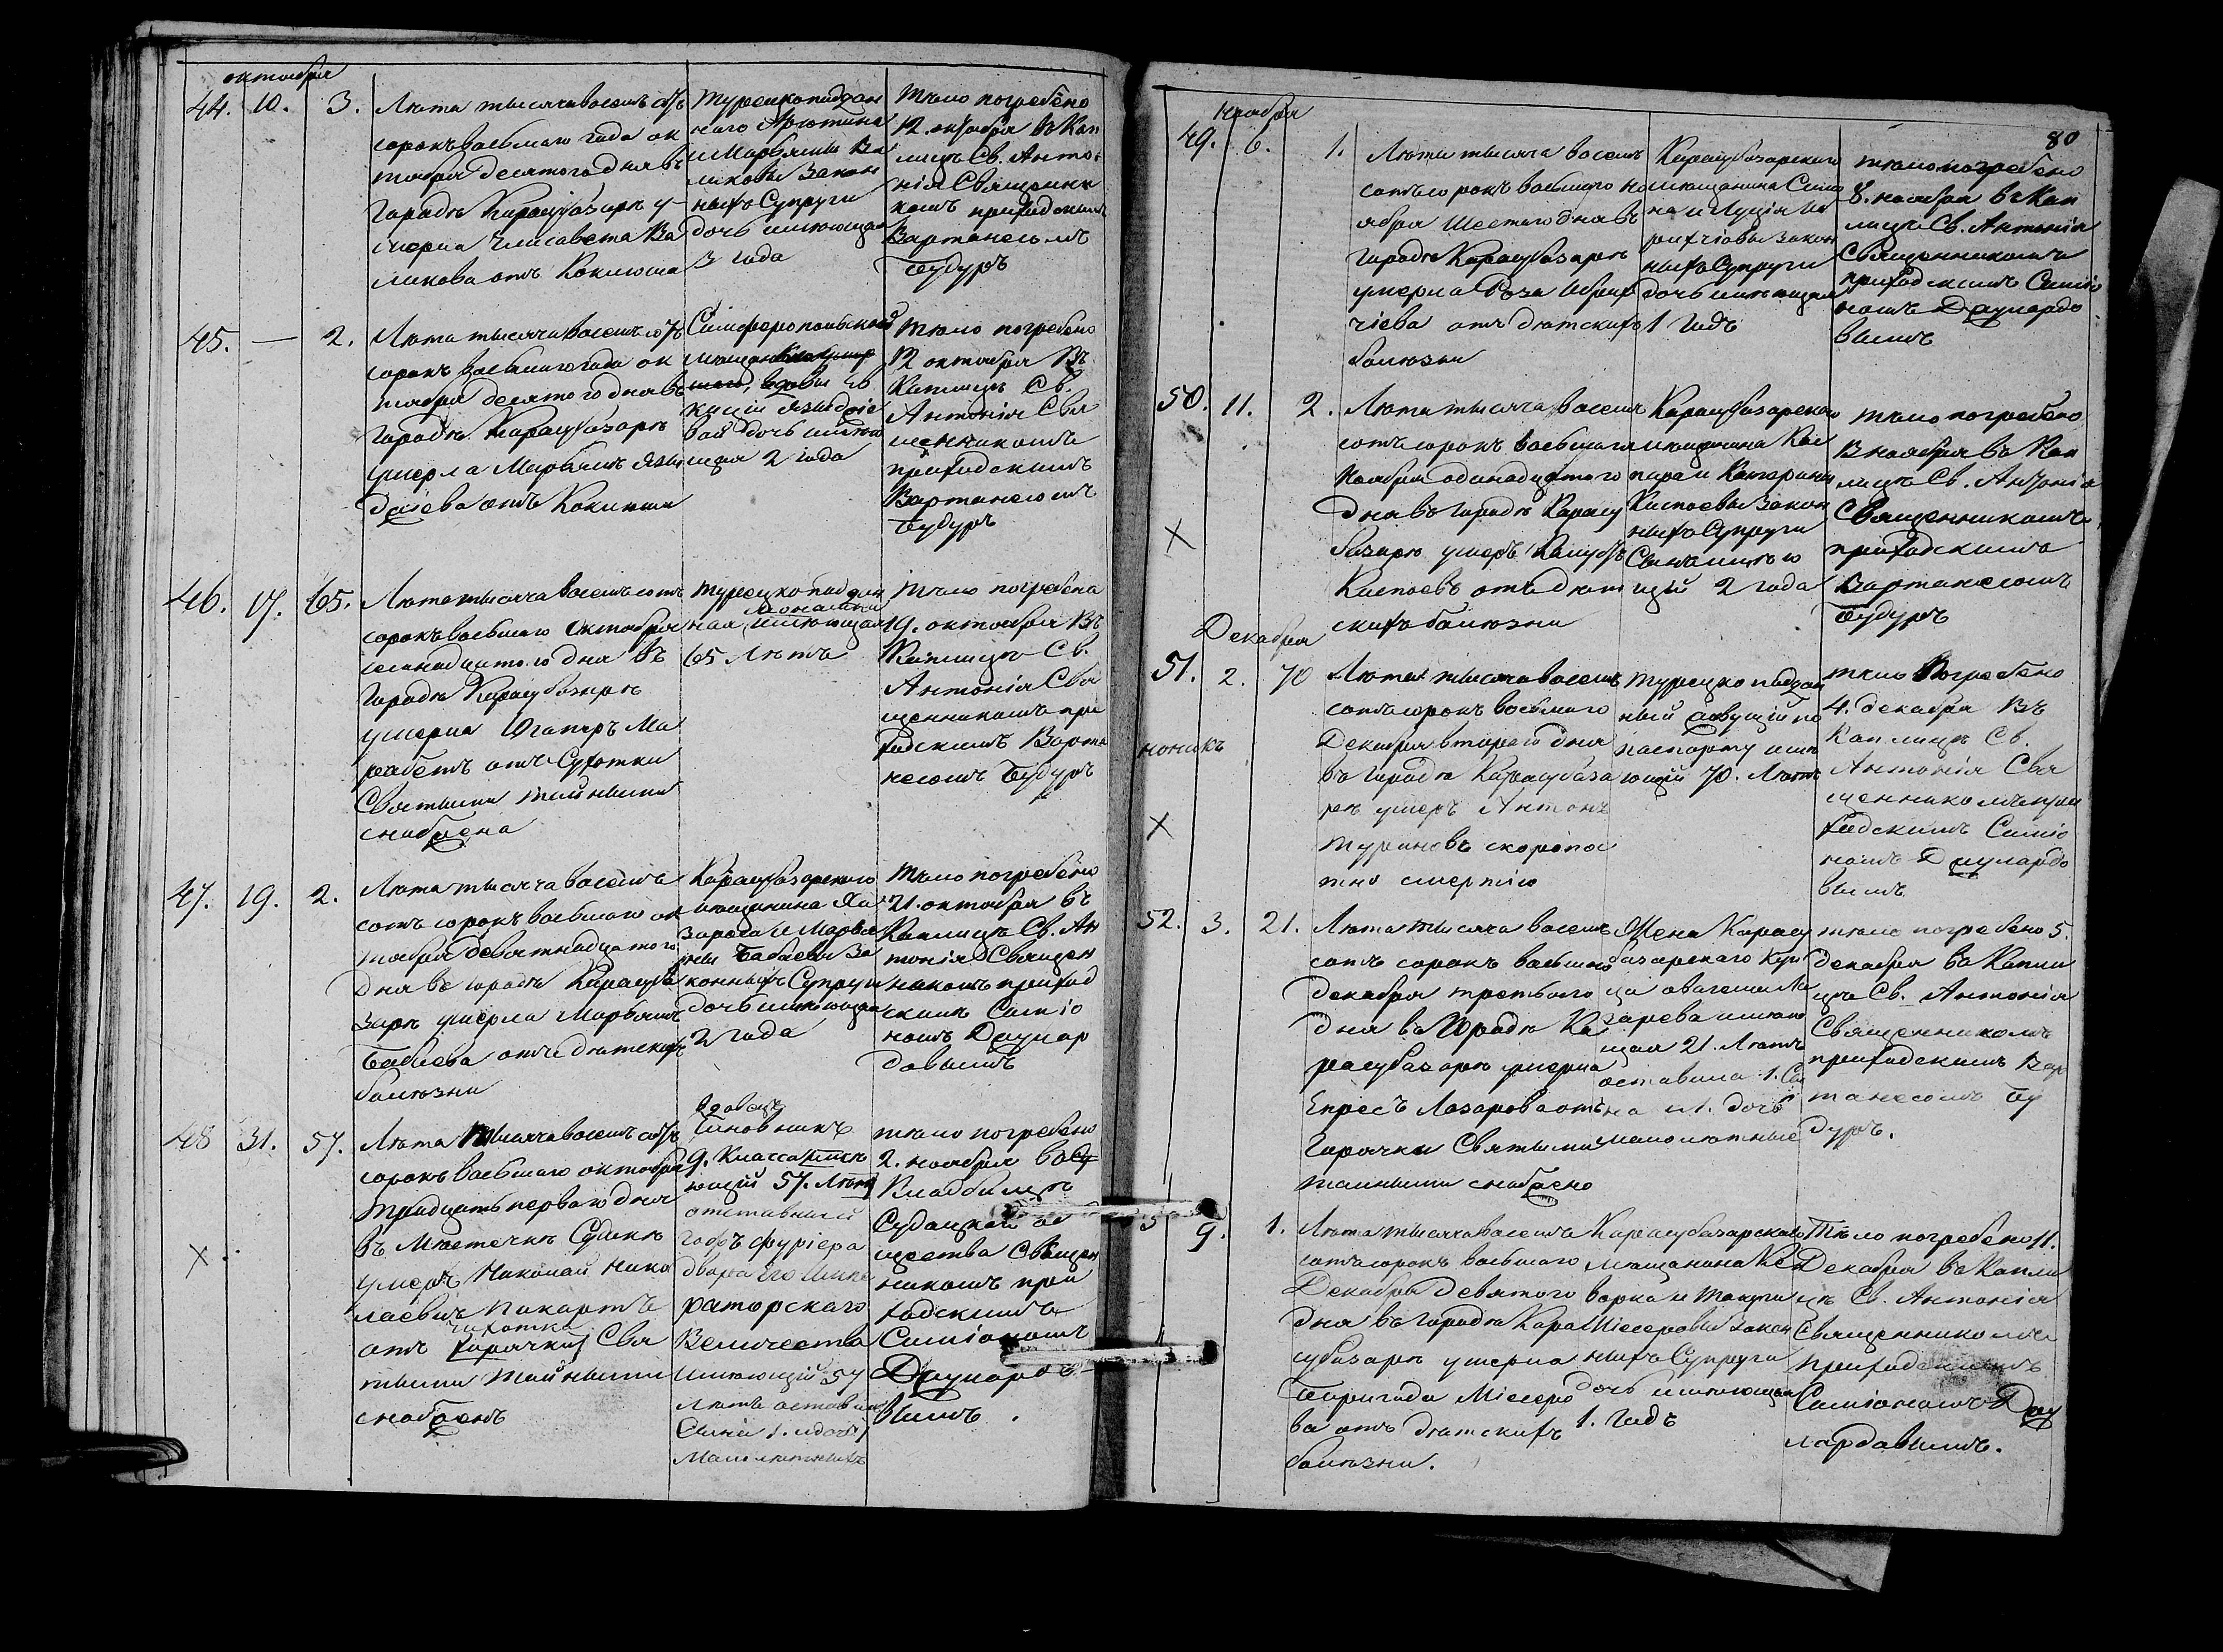 октября
44. 10. 3.
Лѣта тысяча восемь сотъ
сорокъ восьмаго года ок
тября десятого дня въ
городѣ Карасубазарѣ у-
мерла Елисавета Ва
ликова отъ Коклюша
турецкоподдан
наго Арютина
и Марьямы Ва
ликовы закон
ныхъ Супруги
дочь имеющая
3 года
Тѣло погребено
12. октября въ Кап
лицѣ Св. Анто
нія Священни
комъ приходскимъ
Вартанесомъ
Будуръ
45. — 2.
Лѣта тысяча восемь сотъ
сорокъ восьмаго года ок
тября десятого дня въ
городѣ Карасубазарѣ
умерла Марьямъ
отъ Коклюша
Симферопольской
вдовы
вой дочь имѣю
щая 2 года
Тѣло погребено
12 октября Въ
Каплицѣ Св.
Антонія Свя
щенникомъ
приходскимъ
Вартанесомъ
Будуръ
46. 17. 65.
Лѣта тысяча восемь сотъ
сорокъ восьмаго Октября
семнадцатого дня въ
городѣ Карасубазарѣ
умерла Югаперъ Ма
отъ Сухотки
Святыми тайными
снабдена
турецкоподдан
ная имѣющая
65 Лѣтъ
Тѣло погребена
19. октября Въ
Каплицѣ Св.
Антонія Свя
щенникомъ при
ходскимъ Варта
несомъ Будуръ
47. 19. 2.
Лѣта тысяча восемь
сотъ сорокъ восьмаго ок
тября девятнадцатого
дня въ городѣ Карасуба
зарѣ умерла Марьямъ
Бабаева отъ дѣтскихъ
болѣзни
Карасубазарского
мещанина Ла
зароса и Марья
мы Бабаевы За
конныхъ Супруги
дочь имѣющая
2 года
Тѣло погребено
21. октября въ
Каплицѣ Св. Ан
тонія Священ
никомъ приход
скимъ Симіо
номъ Даулар
довымъ
48 31. 57.
Лѣта Тысяча восемь сотъ
сорокъ восьмаго октября
тридцать первого дня
въ Мѣстечкѣ Судакѣ
умеръ Николай Нико
лаевичъ
отъ горячки чахотка Свя
тыми тайными
снабденъ
вдовецъ
Чиновникъ
9. Класса имѣ
ющій 57. Лѣтъ
отставный
гофъ фуріера
двора Его Импе
раторскаго
Величества
имѣющій 57
лѣтъ оставилъ
Сына 1. и дочь
Малолѣтныхъ
тѣло погребено
2. ноября во
Кладбищѣ
Судацкой об
щества Священ
никомъ при
ходскимъ
Симіономъ
Даулардо
вымъ.
80
Ноября
49. 6. 1.
Лѣта тысяча восемь
сотъ сорокъ восьмаго но
ября Шестого дня въ
городѣ Карасубазарѣ
умерла Роза
чіева отъ дѣтскихъ
болѣзни
Карасубазарского
мещанина Симо
на и Луція
закон
ныхъ Супруги
дочь имѣющая
1 годъ
тѣло погребено
8. ноября въ Кап
лицѣ Св. Антонія
Священникомъ
приходскимъ Симіо
номъ Даулардо
вымъ
50. 11. 2.
Лѣта тысяча восемь
сотъ сорокъ восьмаго
Ноября одинадцатого
дня въ городѣ Карасу
базарѣ умеръ
отъ дѣт
скихъ болѣзни
Карасубазарского
мещанина Кас
пара и Катерины
Каспаевы Закон
ныхъ Супруги
Сынъ имѣю
щій 2 года
тѣло погребено
ноября въ Кап
лицѣ Св. Антонія
Священникомъ
приходскимъ
Вартанесомъ
Будуръ
Декабря
51. 2. 70
Лѣта тысяча восемь
сотъ сорокъ восьмаго
Декабря второго дня
въ городѣ Карасубаза
рѣ умеръ Антонъ
скоропос
тно смертію
турецкоподдан
ный по
паспорту имѣ
ющій 70. Лѣтъ
тѣло погребено
4. декабря Въ
Каплицѣ Св.
Антонія Свя
щенникомъ при
ходскимъ Симіо
номъ Даулардо
вымъ
52. 3. 21.
Лѣта тысяча восемь
сотъ сорокъ восьмаго
декабря третьяго
дня въ городѣ Ка
расубазарѣ умерла
Епресъ Лазарова отъ
Горячки Святыми
тайными снабдено
Жена Карасу
базарскаго Куп
ца Ла
зарева имѣю
щая 21. Лѣтъ
оставила 1. Сы
на и 1. дочь
малолѣтные
тѣло погребено 5.
декабря въ Капли
цѣ Св. Антонія
Священникомъ
приходскимъ Вар
танесомъ Бу
дуръ.
5 9. 1.
Лѣта тысяча восемь
сотъ сорокъ восьмаго
Декабря девятого
дня въ городѣ Кара
субазарѣ умерла
Міссеро
ва отъ дѣтскихъ
болѣзни.
Карасубазарскаго
Мещанина Ке
ворка и
Міссеровы Закон
ныхъ Супруги
дочь имѣющая
1. годъ
Тѣло погребено 11.
Декабря въ Капли
цѣ Св. Антонія
Священникомъ
Приходскимъ
Симіономъ Дау
лардовымъ.